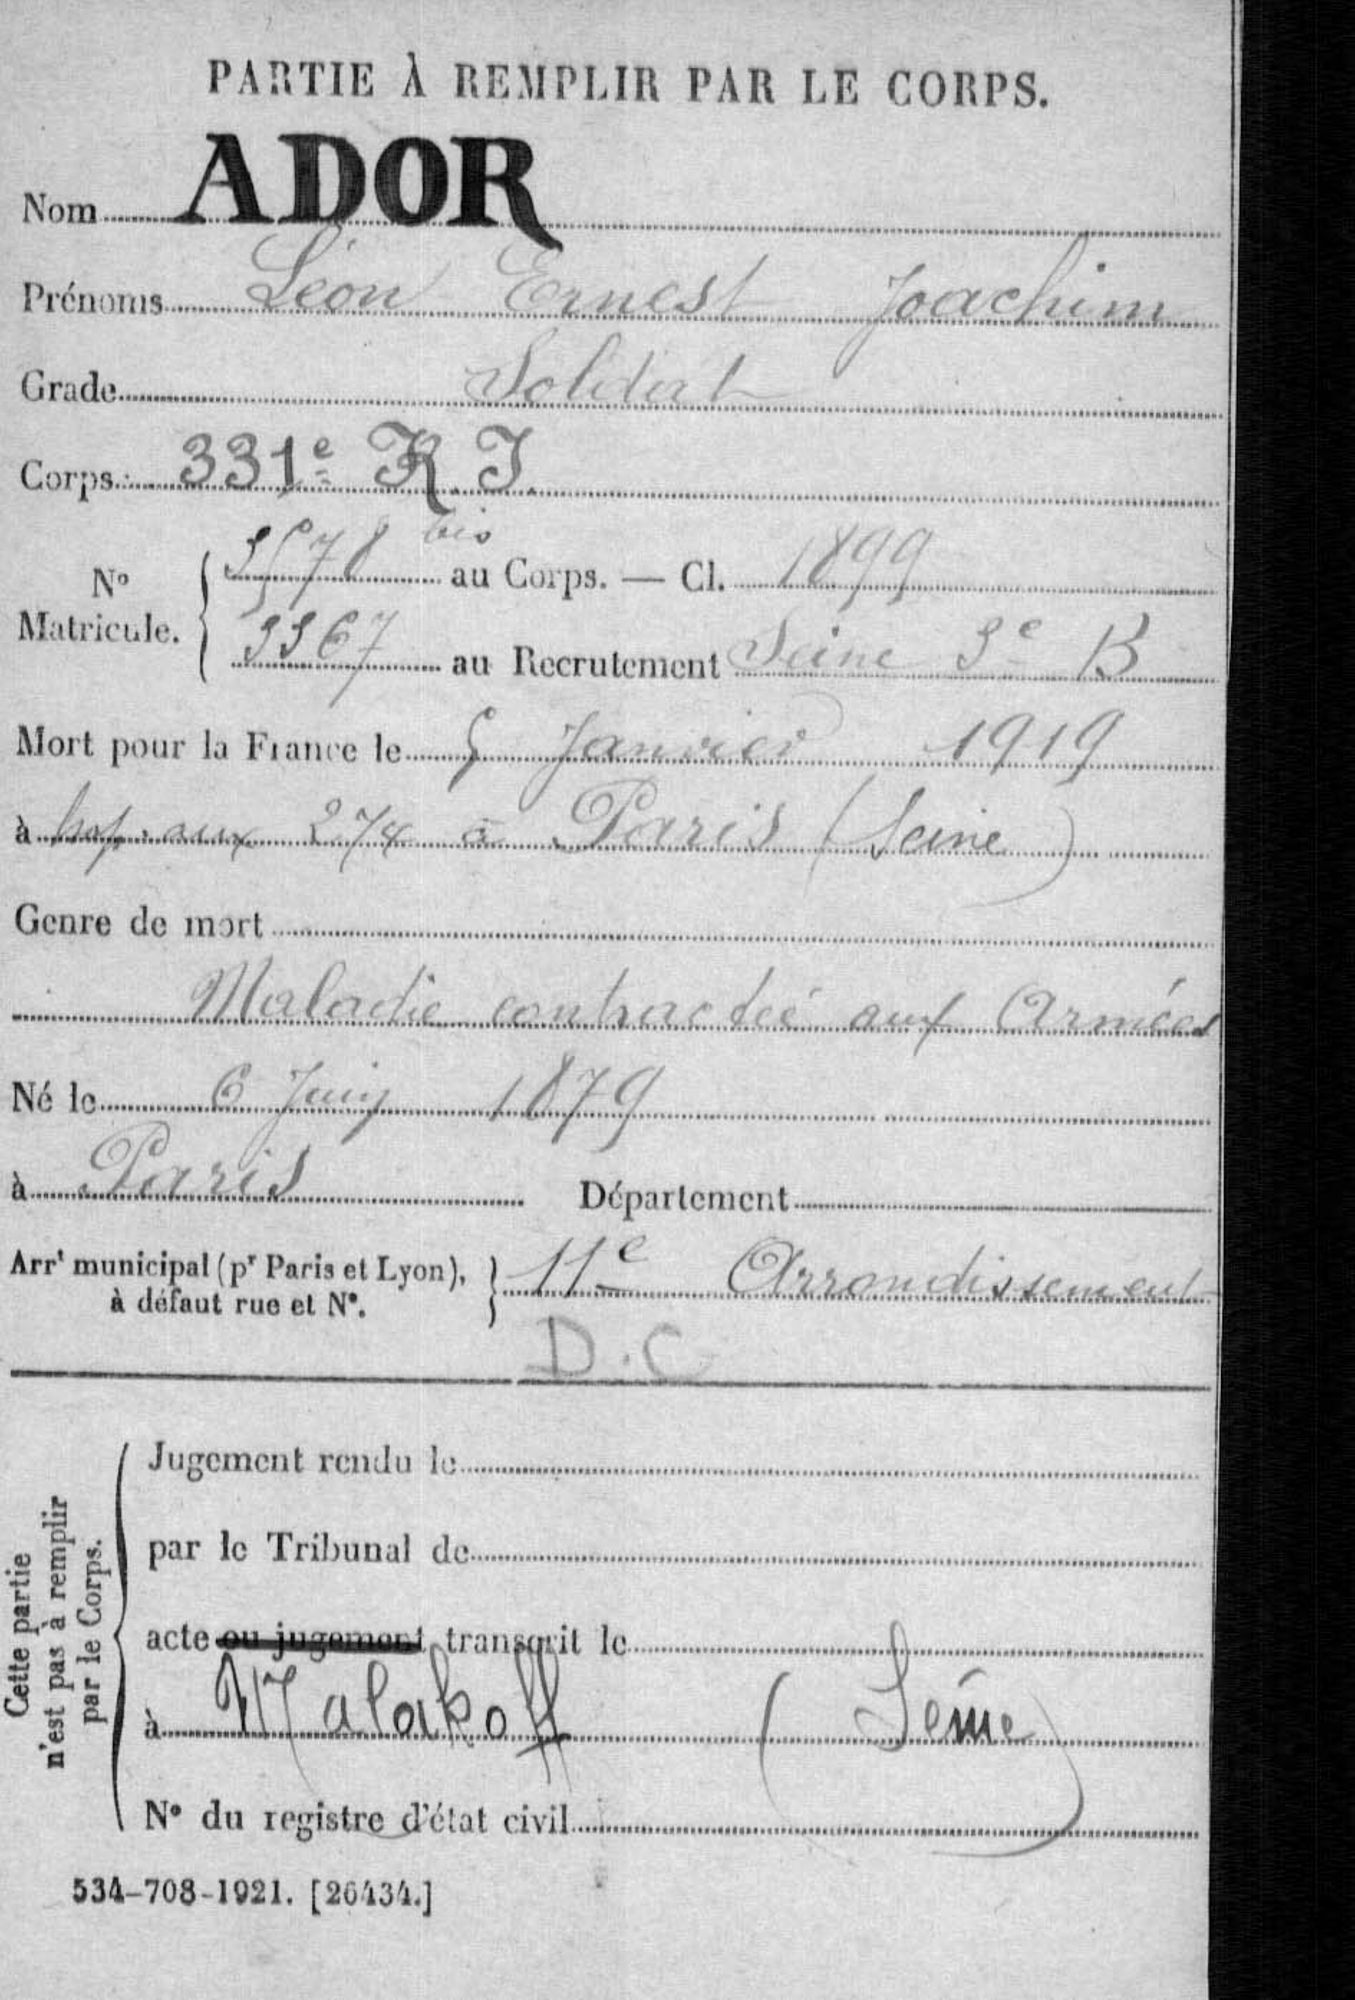 PARTIE À REMPLIR PAR LE CORPS.
Nom ADOR
Prénoms Léon Ernest Joachim
Grade Soldat
Corps 331e R. I.
No Matricule. 3578 bis au Corps. — Cl. 1899
3367 au Recrutement Seine 3e B
Mort pour la France le 5 Janvier 1919
à hop. aux 274 à Paris (Seine)
Genre de mort
Maladie contractée aux Armées
Né le 6 Juin 1879
à Paris Département
Arrt municipal (pr Paris et Lyon), à défaut rue et No. 11e Arrondissement
D.C
Cette partie n'est pas à remplir par le Corps.
Jugement rendu le
par le Tribunal de
acte ou jugement transcrit le
à Malakoff (Seine)
No du registre d'état civil
534-708-1921. [26434.]